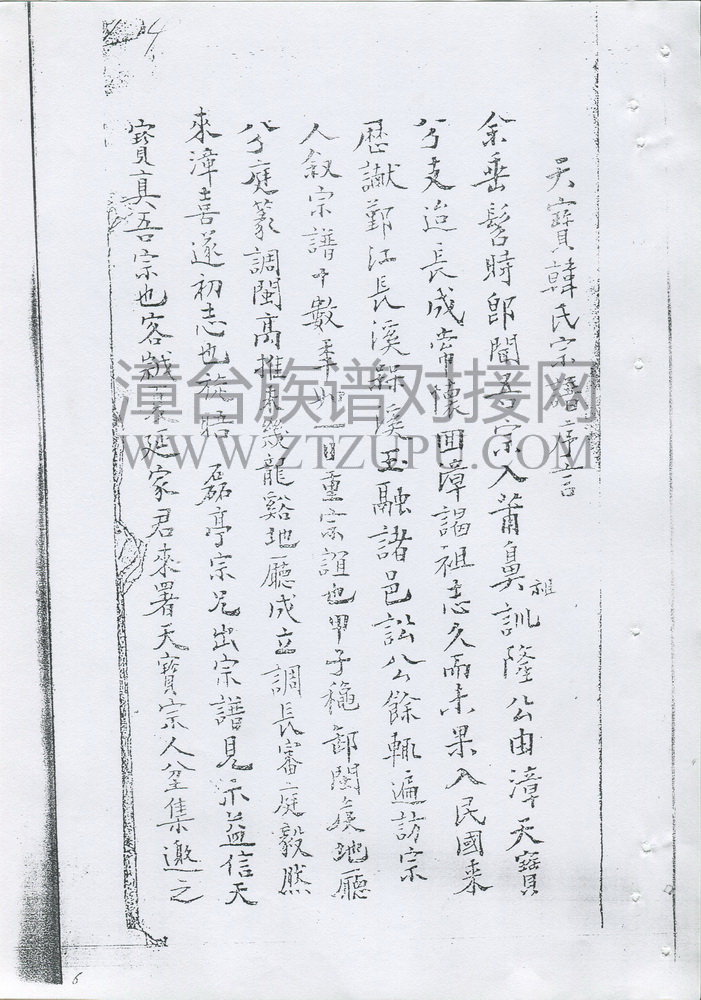 天寶韓氏宗譜序言
余垂髫時卽聞吾宗入莆鼻祖訓隆公由漳天寶
分支迨長成常懷回漳謁祖志久而未果入民國來
歷讞鄞江長溪霖溪玉融諸邑訟公餘輒遍訪宗
人敘宗譜十數年如一日重宗誼也甲子穐卸閩矦地廳
分庭篆調閩高推未幾龍谿地廳成立調長審庭毅然
來漳喜遂初志也旋晤 磊亭宗兄出宗譜見示益信天
寶真吾宗也客歲末延家君來署天寶宗人坌集邀之
漳台族谱对接网
WWW.ZTZUPU.COM
6